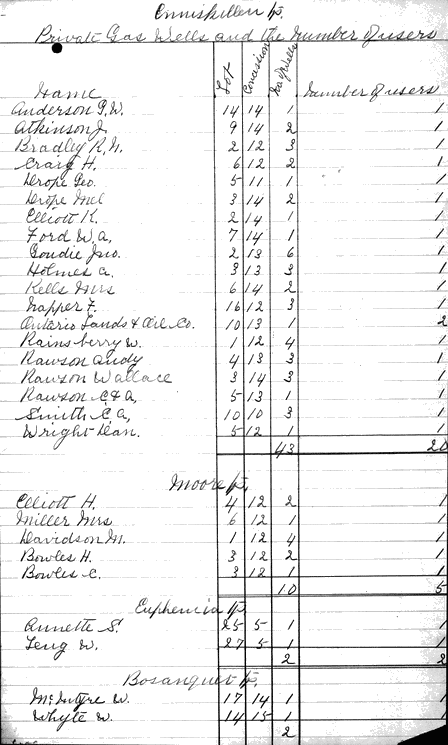 Enniskillen tp.
Private Gas Wells and the Number of users
Name Lot Concession No of Wells Number of users
Anderson G.W. 14 14 1 1
Atkinson J. 9 14 2 1
Bradley R.N. 2 12 3 1
Craig H. 6 12 2 1
Drope Geo. 5 11 1 1
Drope Mel 3 14 2 1
Elliott K. 2 14 1 1
Ford W.A. 7 14 1 1
Goudie Jno. 2 13 6 1
Holmes A. 3 13 3 1
Kells Mrs 6 14 2 1
Napper F. 16 12 3 1
Ontario Lands & Oil Co. 10 13 1 2
Rainsberry W. 1 12 4 1
Rawson Andy 4 13 3 1
Rawson Wallace 3 14 3 1
Rawson C & A, 5 13 1 1
Smith C A, 10 10 3 1
Wright Dan. 5 12 1 1
43 20
Moore tp.
Elliott H. 4 12 2 1
Miller Mrs 6 12 1 1
Davidson M. 1 12 4 1
Bowles H. 3 12 2 1
Bowles C. 3 12 1 1
10 5
Euphemia tp.
Annette S. 25 5 1 1
Leng W. 27 5 1 1
2 2
Bosanquet tp.
McIntyre W. 17 14 1 1
Whyte W. 14 15 1 1
2